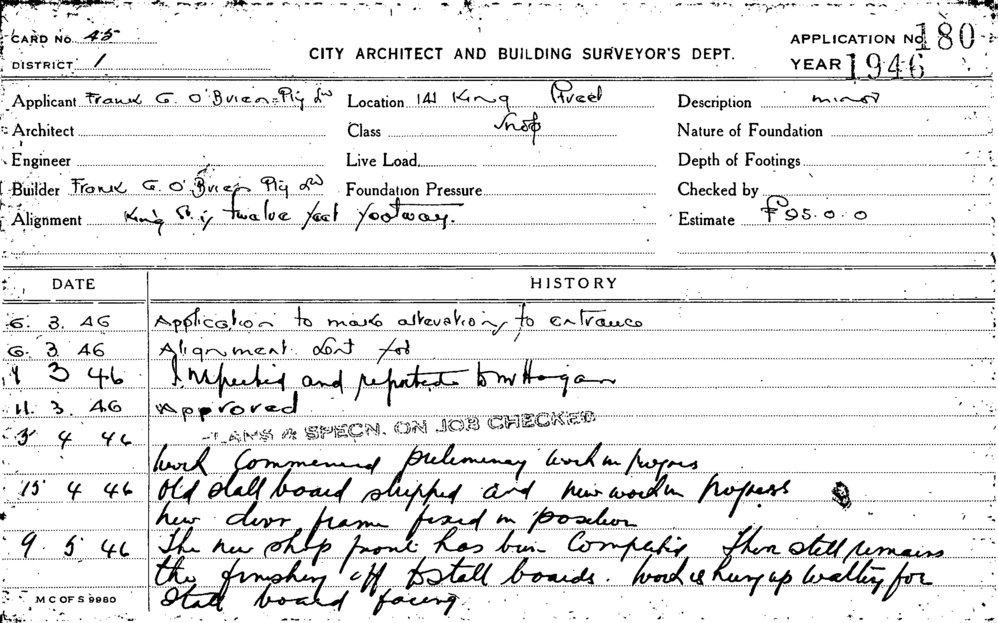 CARD No. 45
DISTRICT 1
CITY ARCHITECT AND BUILDING SURVEYOR'S DEPT.
APPLICATION No 180
YEAR 1946
Applicant Frank G. O'Brien Pty Ltd Location 141 King Street Description minor
Architect Class Shop Nature of Foundation
Engineer Live Load Depth of Footings
Builder Frank G. O'Brien Pty Ltd Foundation Pressure Checked by
Alignment King St. is twelve feet footway. Estimate £95.0.0
DATE HISTORY
6. 3. 46 Application to make alterations to entrance
6. 3. 46 Alignment sent for
3 46 Inspected and reported to Mr Hogan
11. 3. 46 Approved
3 4 46 PLANS & SPECN. ON JOB CHECKED
Work Commenced preliminary work in progress
15 4 46 Old stall board stripped and new work in progress
new door frame fixed in position
9 5 46 The new shop front has been Completed There still remains
the finishing off to stall boards. Work is hung up waiting for
M C OF S 9980 Stall board facing